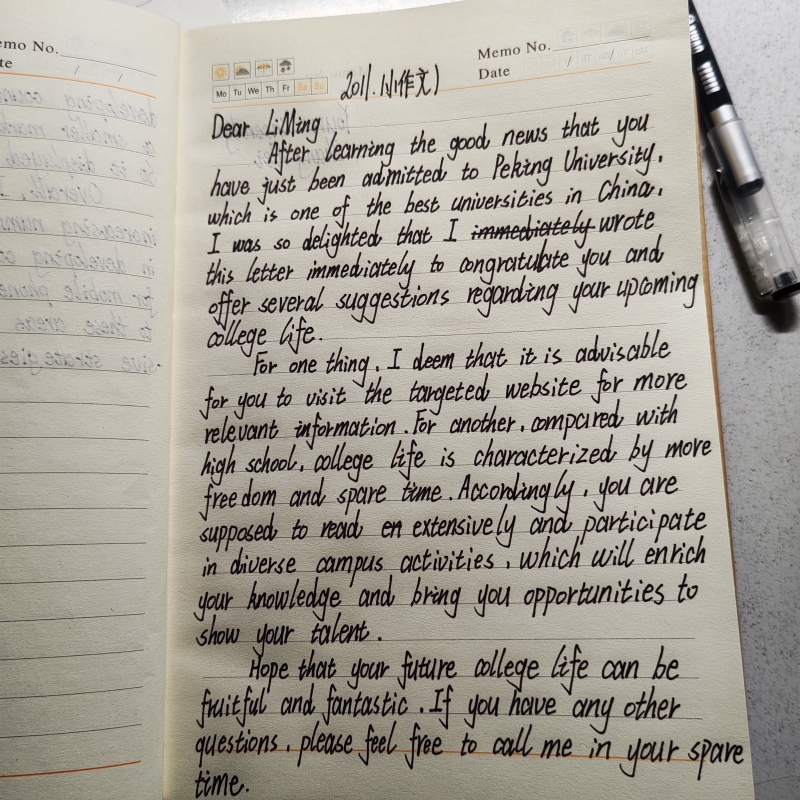 emo No.
te / /
Memo No.
Date / /
Mo Tu We Th Fr Sa Su
2011.(小作文)
Dear LiMing
After learning the good news that you
have just been admitted to Peking University,
which is one of the best universities in China,
I was so delighted that I immediately wrote
this letter immediately to congratulate you and
offer several suggestions regarding your upcoming
college life.
For one thing, I deem that it is advisable
for you to visit the targeted website for more
relevant information. For another, compared with
high school, college life is characterized by more
freedom and spare time. Accordingly, you are
supposed to read en extensively and participate
in diverse campus activities, which will enrich
your knowledge and bring you opportunities to
show your talent.
Hope that your future college life can be
fruitful and fantastic. If you have any other
questions, please feel free to call me in your spare
time.